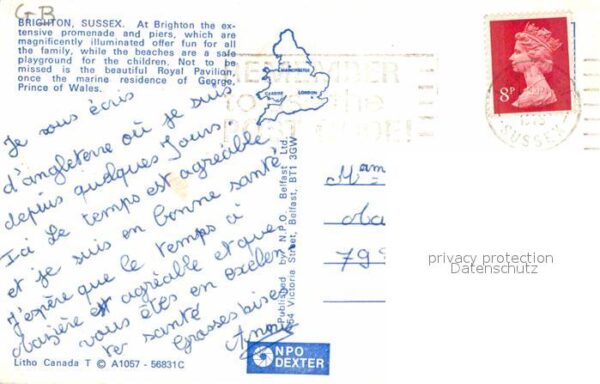 G-B
BRIGHTON, SUSSEX. At Brighton the ex-
tensive promenade and piers, which are
magnificently illuminated offer fun for all
the family, while the beaches are a safe
playground for the children. Not to be
missed is the beautiful Royal Pavilion,
once the marine residence of George,
Prince of Wales.
MANCHESTER
CARDIFF
LONDON
REMEMBER
to use the
POST CODE!
8P
SUSSEX
Je vous écris
d'angleterre où je suis
depuis quelques Jours
Ici Le temps est agréable
et je suis en bonne santé
J'espère que le temps à
est agréable et que
vous êtes en exelen
te santé
Grosses bises
Published by N.P.O. Belfast Ltd.
54 Victoria Street, Belfast, BT1 3GW
Mam
799
privacy protection
Datenschutz
NPO
DEXTER
Litho Canada T © A1057 - 56831C